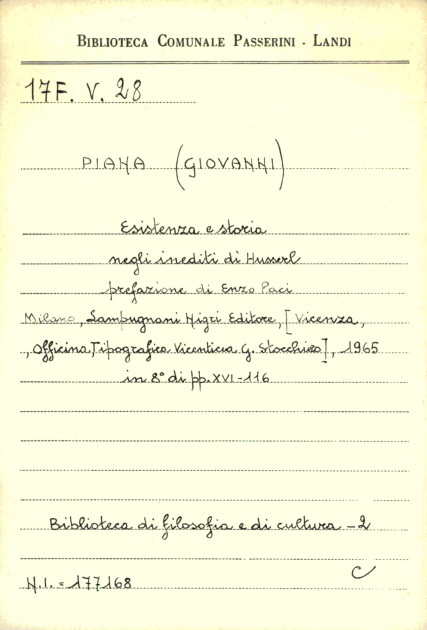 BIBLIOTECA COMUNALE PASSERINI - LANDI
17F. V. 28
PIANA (GIOVANNI)
Esistenza e storia
negli inediti di Husserl
prefazione di Enzo Paci
Milano, Lampugnani Nigri Editore, [Vicenza,
, Officina Tipografica Vicentina G. Stocchiero], 1965
in 8° di pp. XVI-116
Biblioteca di filosofia e di cultura - 2
C
N.I. = 177168